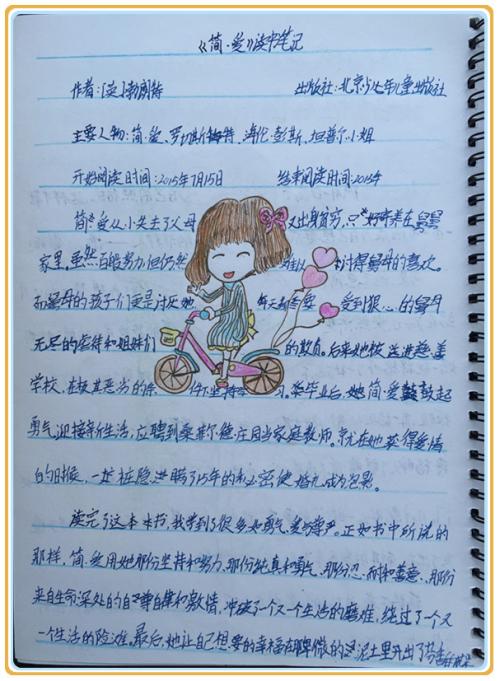 《简·爱》读书笔记
作者:[英]勃朗特 出版社:北京少年儿童出版社
主要人物:简·爱、罗切斯特、海伦·彭斯、坦普尔小姐
开始阅读时间:2015年7月15日 结束阅读时间:2015年
简·爱从小失去了父母 又出身贫穷,只好寄养在舅舅
家里。虽然百般努力但仍然 难以 讨得舅母的喜欢。
而舅母的孩子们更是讨厌她 每天都要 受到狠心的舅母
无尽的虐待和姐妹们 的欺负。后来她被送进慈善
学校,在极其恶劣的条 件下坚持学 习。毕业后,她简·爱鼓起
勇气迎接新生活,应聘到桑菲尔德庄园当家庭教师。就在她获得爱情
的时候,一桩隐瞒了15年的秘密使婚礼成为泡影。
读完了这本书,我学到了很多如勇气、爱与尊严。正如书中所说的
那样,简·爱用她那份坚持和努力,那份纯真和勇气,那份忍耐和善意、那份
来自生命深处的自尊自集和激情,冲破了一个又一个生活的磨难,绕过了一个又
一个生活的险滩,最后,她让自己想要的幸福在卑微的泥土里开出了芬香